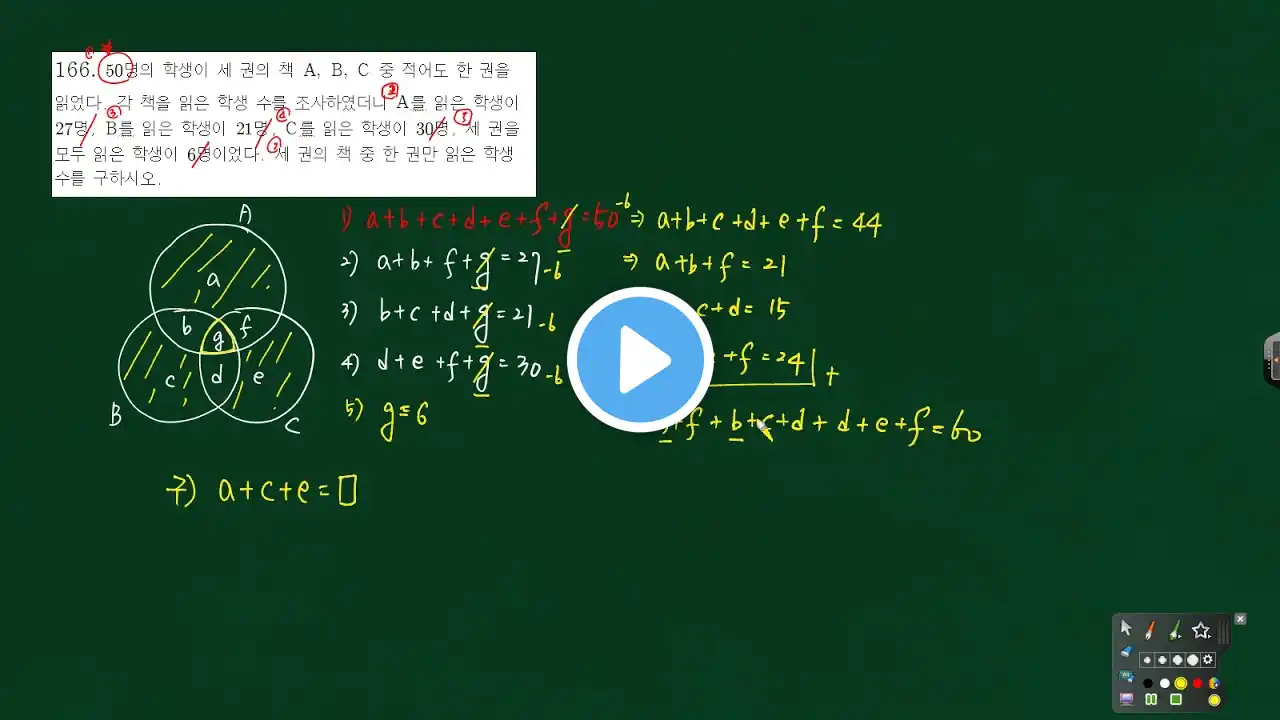 166. 50명의 학생이 세 권의 책 A, B, C 중 적어도 한 권을
읽었다. 각 책을 읽은 학생 수를 조사하였더니 A를 읽은 학생이
27명, B를 읽은 학생이 21명, C를 읽은 학생이 30명, 세 권을
모두 읽은 학생이 6명이었다. 세 권의 책 중 한 권만 읽은 학생
수를 구하시오.
A
a
b
g
f
c
d
e
B
C
1) a+b+c+d+e+f+g=50 -6 ⇒ a+b+c+d+e+f=44
2) a+b+f+g=27 -6 ⇒ a+b+f=21
3) b+c+d+g=21 -6 c+d=15
4) d+e+f+g=30 -6 +f=24 +
5) g=6
+f+b+c+d+d+e+f=60
구) a+c+e=□